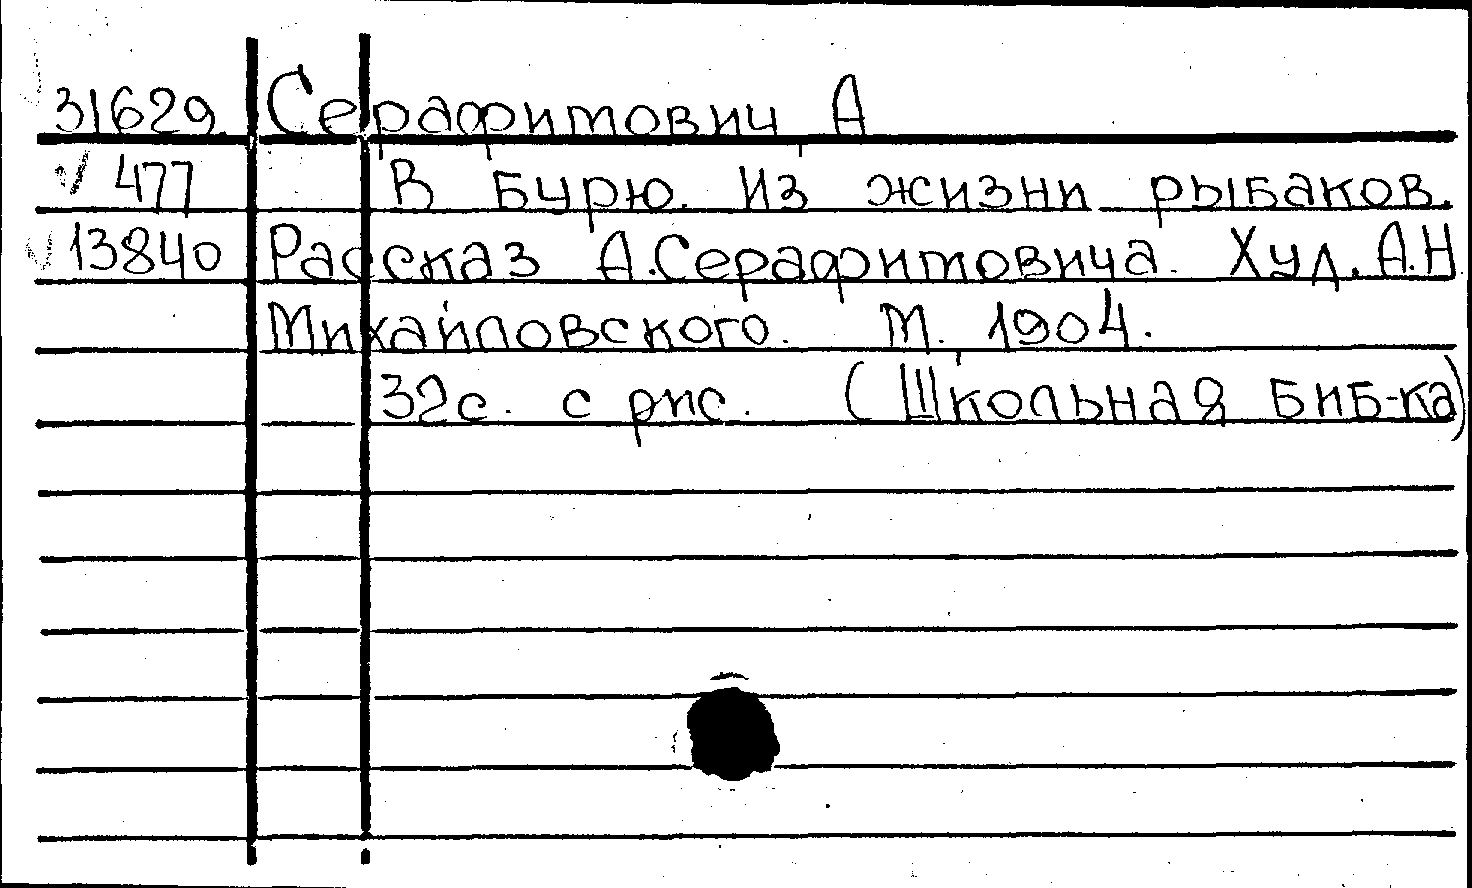 31629 Серафимович А
√ 477 В бурю. Из жизни рыбаков.
√ 13840 Рассказ А.Серафимовича. Худ. А.Н
Михайловского. М. 1904.
32с. с рис. (Школьная биб-ка)